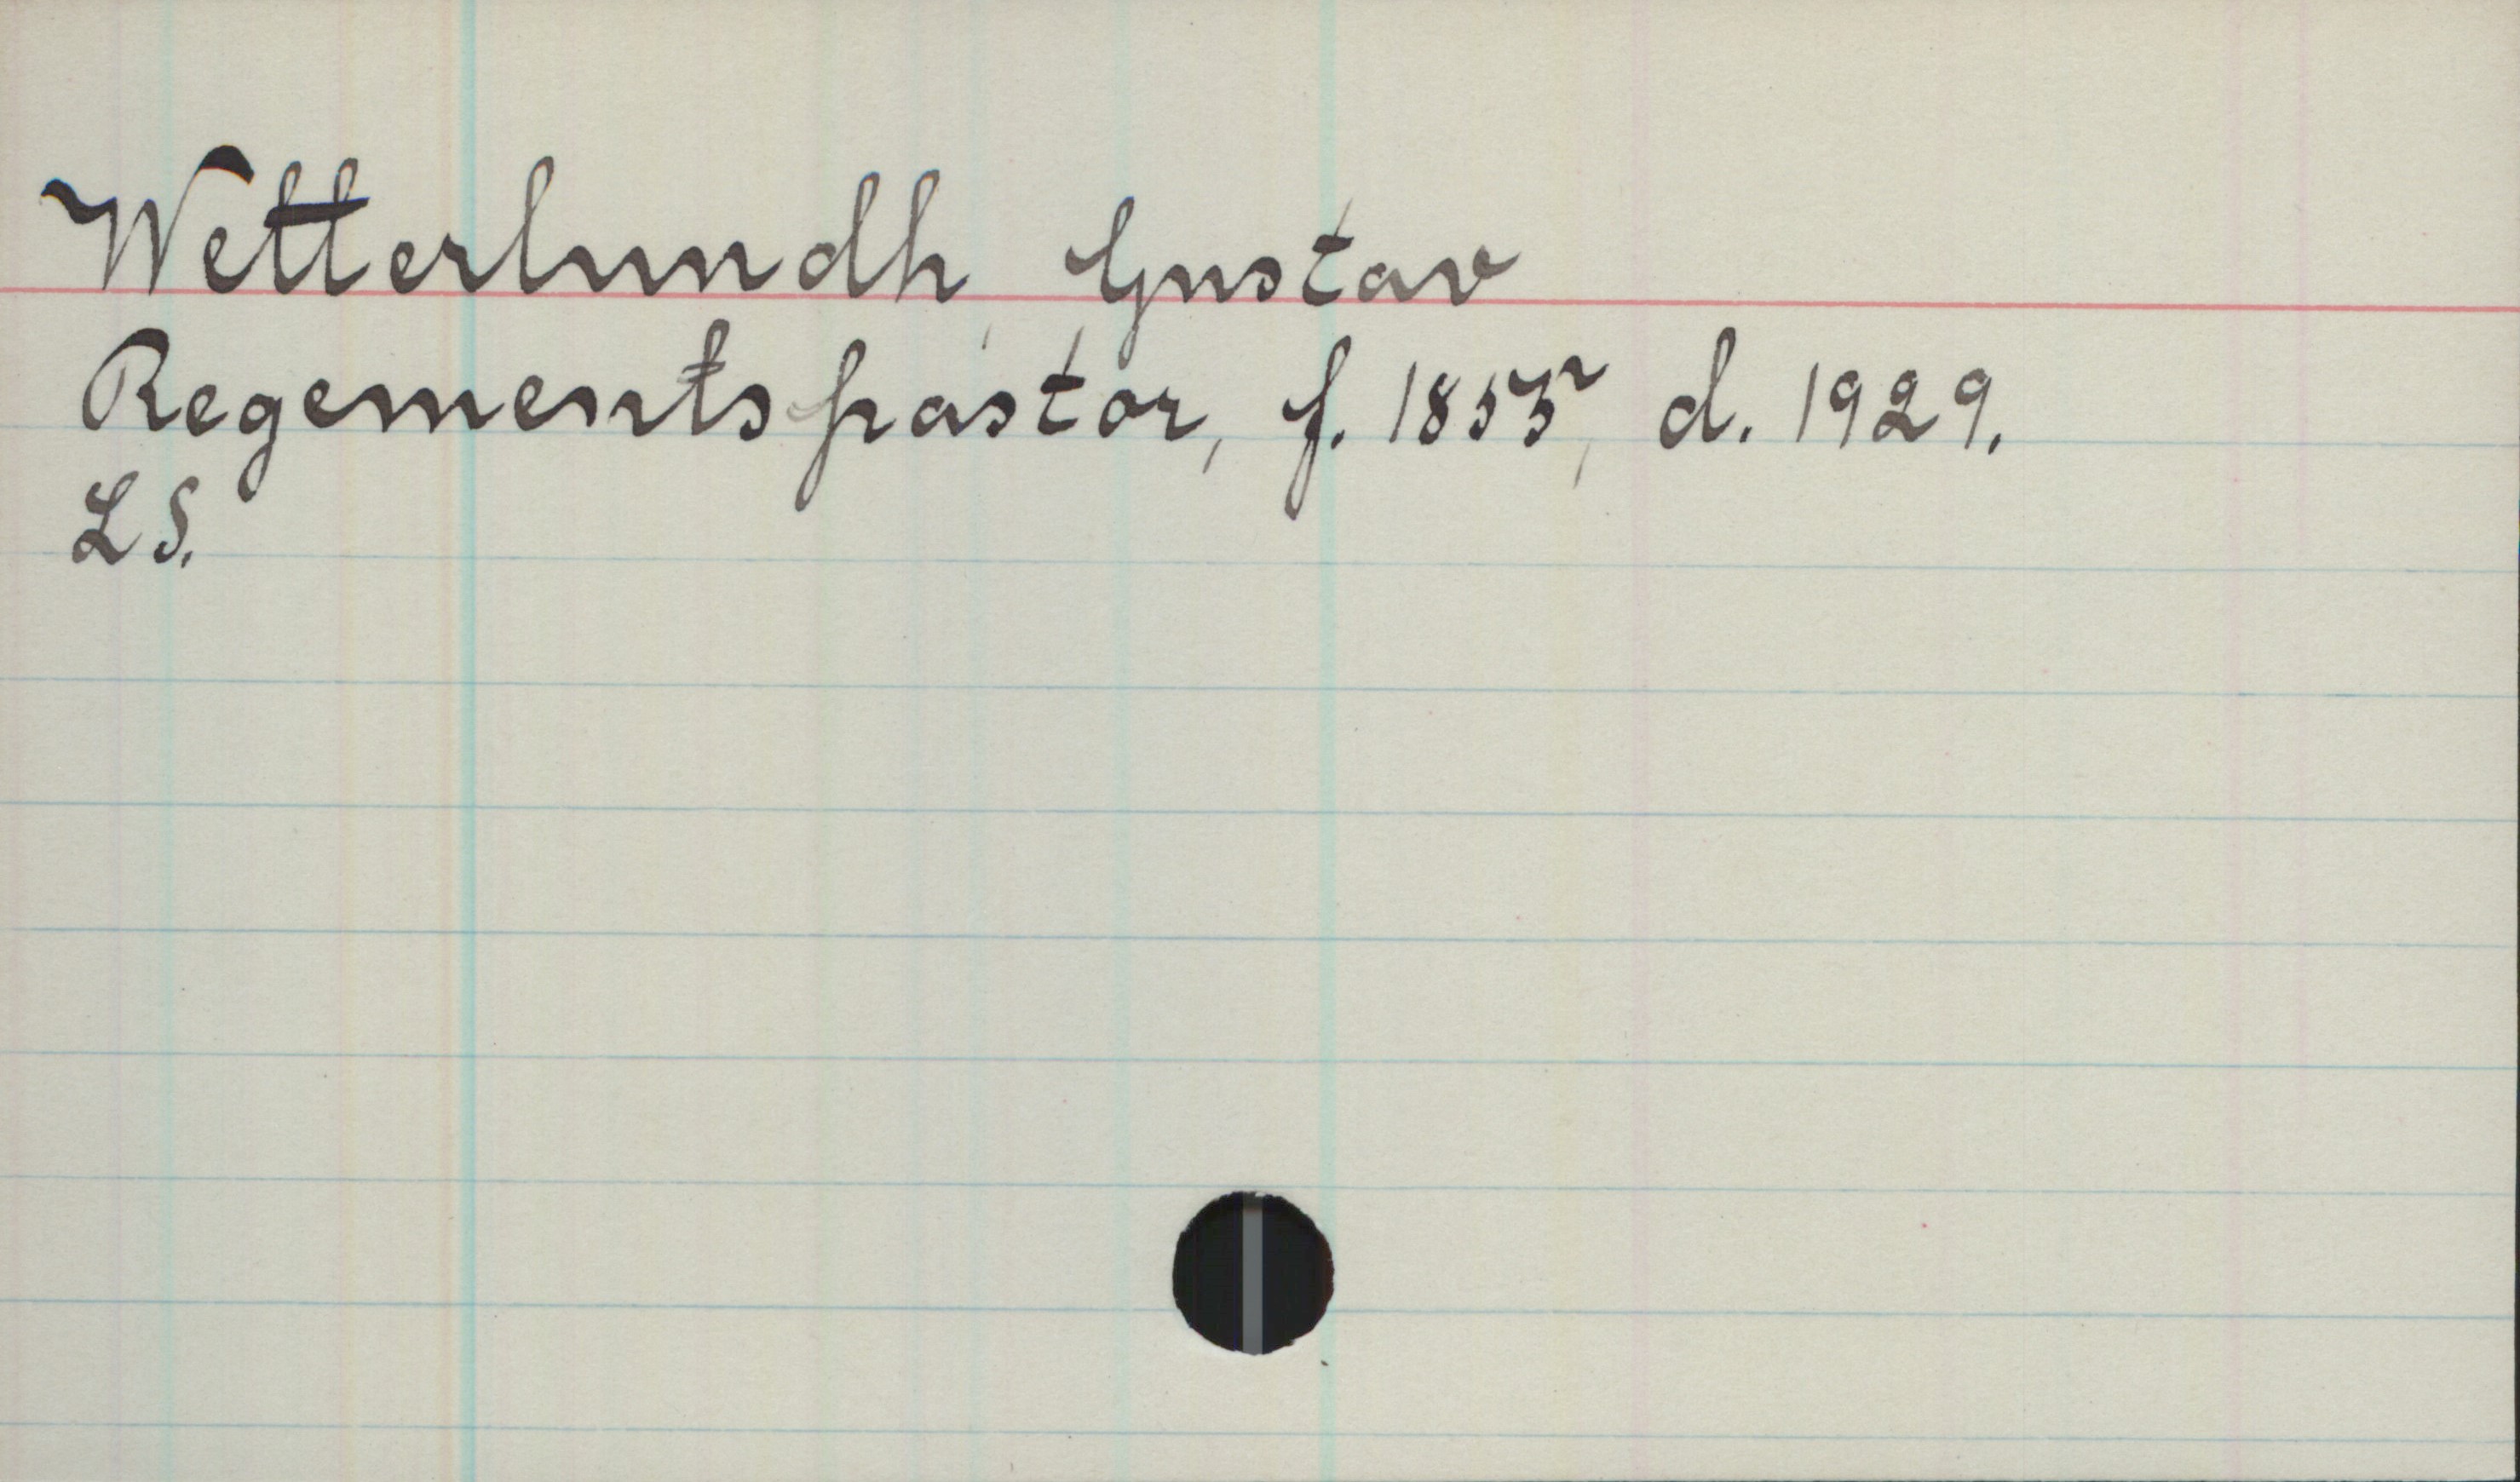 Wetterlundh, Gustav
Regementspastor, f. 1855, d. 1929.
LS.